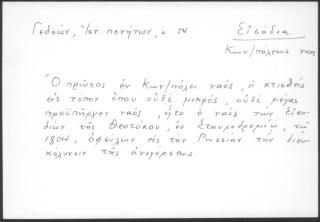 Γεδεών, Ἱστ. πενήτων, σ. 54
Εἰσόδια
Κων/πόλεως ναοί
Ὁ πρῶτος ἐν Κων/πόλει ναός, ὁ κτισθείς
εἰς τόπον ὅπου οὐδέ μικρός, οὐδέ μέγας
προϋπῆρχεν ναός, ἦτο ὁ ναός τῶν Εἰσο-
δίων τῆς Θεοτόκου, ἐν Σταυροδρομίῳ, τῷ
1804, ὀφείλων εἰς τήν Ρωσσίαν τήν διευ-
κόλυνσιν τῆς ἀνεγέρσεως.